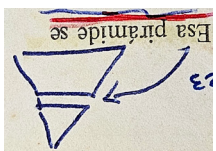 Esa pirámide se
23